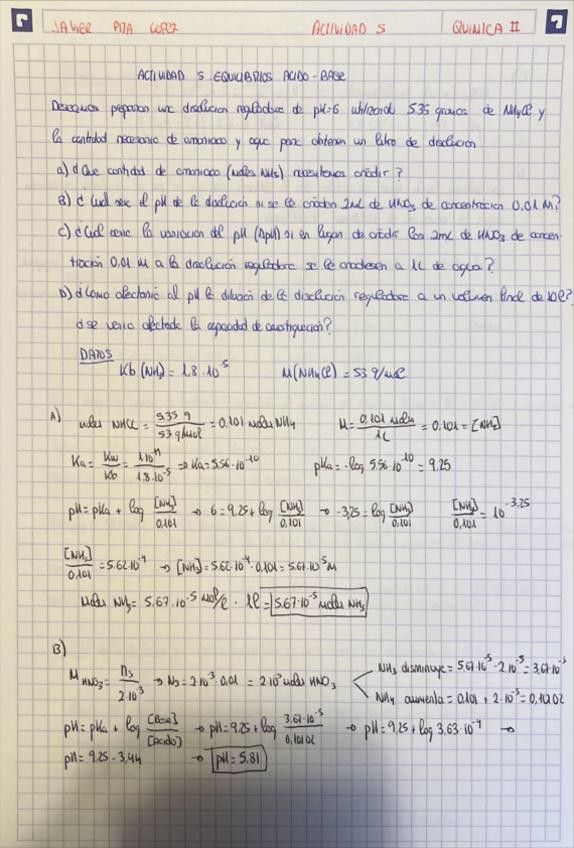 JAVIER PITA LOPEZ ACTIVIDAD 5 QUIMICA II
ACTIVIDAD 5 EQUILIBRIOS ACIDO-BASE
Deseamos preparar una disolucion reguladora de pH=6 utilizando 5.35 gramos de NH4Cl y
la cantidad necesaria de amoniaco y agua para obtener un litro de disolucion
a) ¿Que cantidad de amoniaco (moles NH3) necesitamos añadir?
B) ¿Cual sera el pH de la disolucion si se le añaden 2mL de HNO3 de concentracion 0,01 M?
C) ¿Cual seria la variacion del pH (ΔpH) si en lugar de añadir los 2mL de HNO3 de concen-
tracion 0.01 M a la disolucion reguladora se le añadiesen a 1L de agua?
D) ¿Como afectaria al pH la dilucion de la disolucion reguladora a un volumen final de 10l?
¿se veria afectada la capacidad de amortiguacion?
DATOS
Kb (NH3) = 1,8 · 10^-5 M(NH4Cl) = 53 g/mol
A) moles NH4Cl = 5.35 g / 53 g/mol = 0.101 moles NH4 M = 0.101 moles / 1L = 0.101 = [NH4]
Ka = Kw / Kb = 1·10^-14 / 1.8·10^-5 → Ka = 5.56·10^-10 pKa = -log 5.56·10^-10 = 9.25
pH = pKa + log [NH3] / 0.101 → 6 = 9.25 + log [NH3] / 0.101 → -3,25 = log [NH3] / 0,101 [NH3] / 0.101 = 10^-3,25
[NH3] / 0.101 = 5.62·10^-4 → [NH3] = 5.62·10^-4 · 0.101 = 5.67·10^-5 M
Moles NH3 = 5.67·10^-5 mol/l · 1l = 5.67·10^-5 moles NH3
B)
M HNO3 = ns / 2·10^-3 → Ns = 2·10^-3 · 0.01 = 2·10^-5 moles HNO3
NH3 disminuye = 5,67·10^-5 - 2·10^-5 = 3,67·10^-5
NH4 aumenta = 0.101 + 2·10^-5 = 0,10102
pH = pKa + log [Base] / [Acido] → pH = 9.25 + log 3.67·10^-5 / 0,10102 → pH = 9,25 + log 3.63·10^-4 →
pH = 9,25 - 3,44 → pH = 5.81